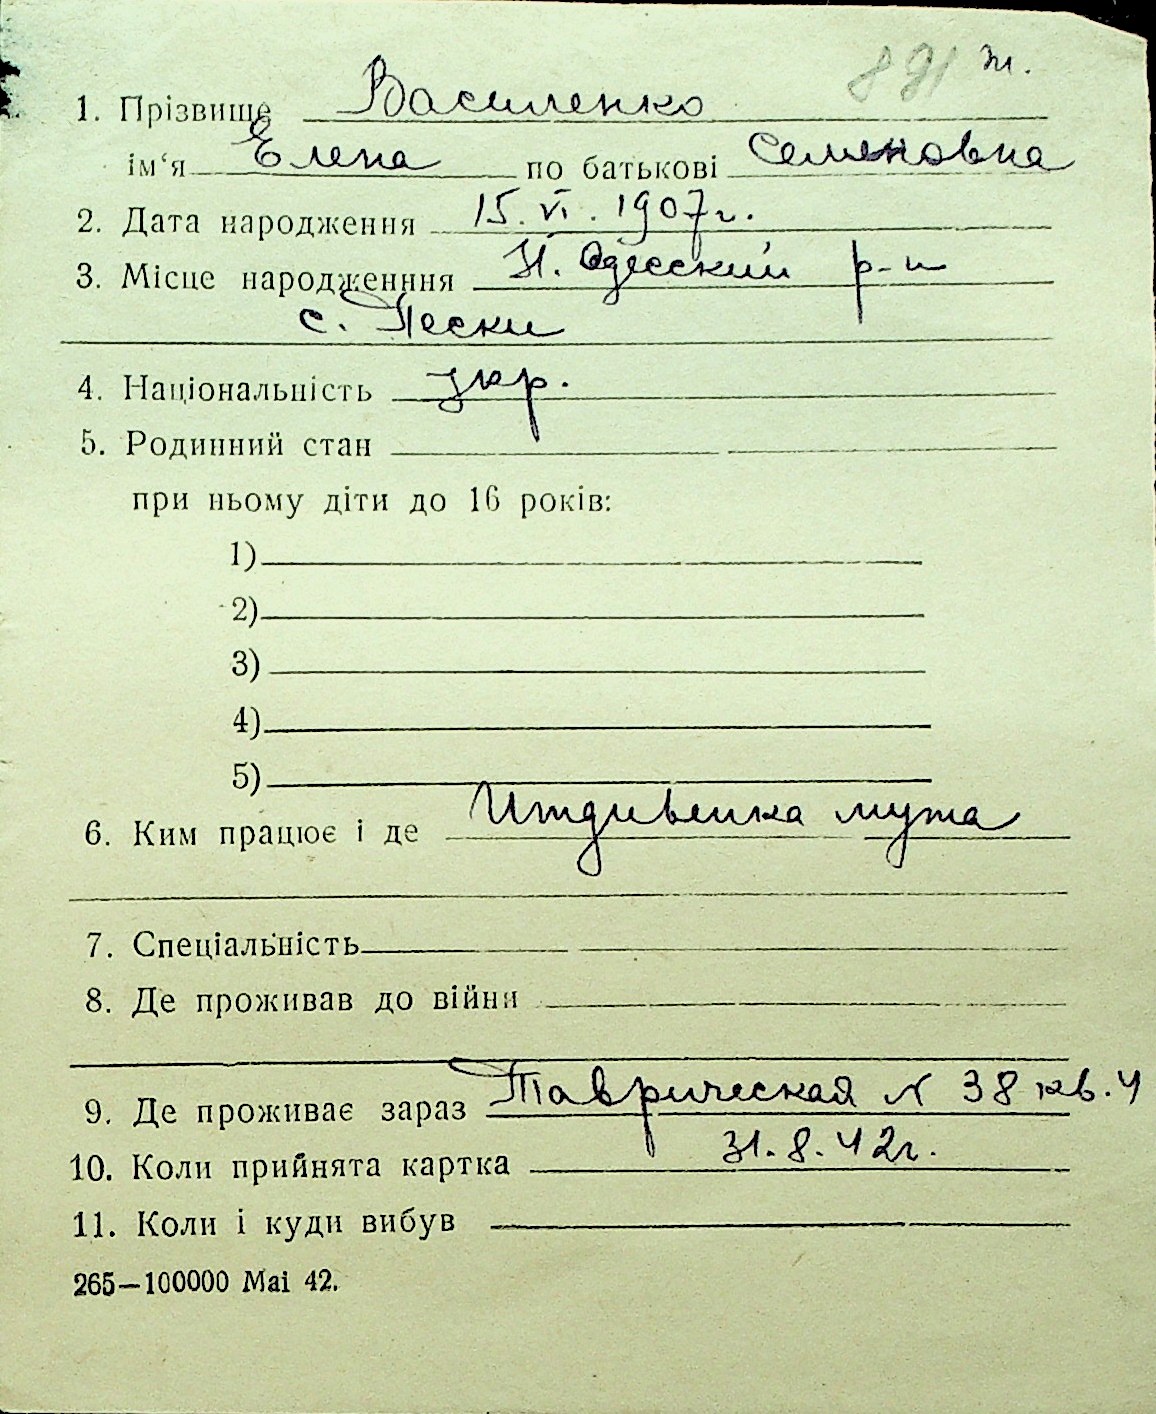 891 т.
1. Прізвище Василенко
ім‘я Елена по батькові Семеновна
2. Дата народження 15.VI.1907г.
3. Місце народженння Н. Одесский р-н
с. Пески
4. Національність укр.
5. Родинний стан
при ньому діти до 16 років:
1)
2)
3)
4)
5)
6. Ким працює і де Иждивенка мужа
7. Спеціальність
8. Де проживав до війни
9. Де проживає зараз Таврическая № 38 кв. 4
10. Коли прийнята картка 31.8.42г.
11. Коли і куди вибув
265—100000 Mai 42.